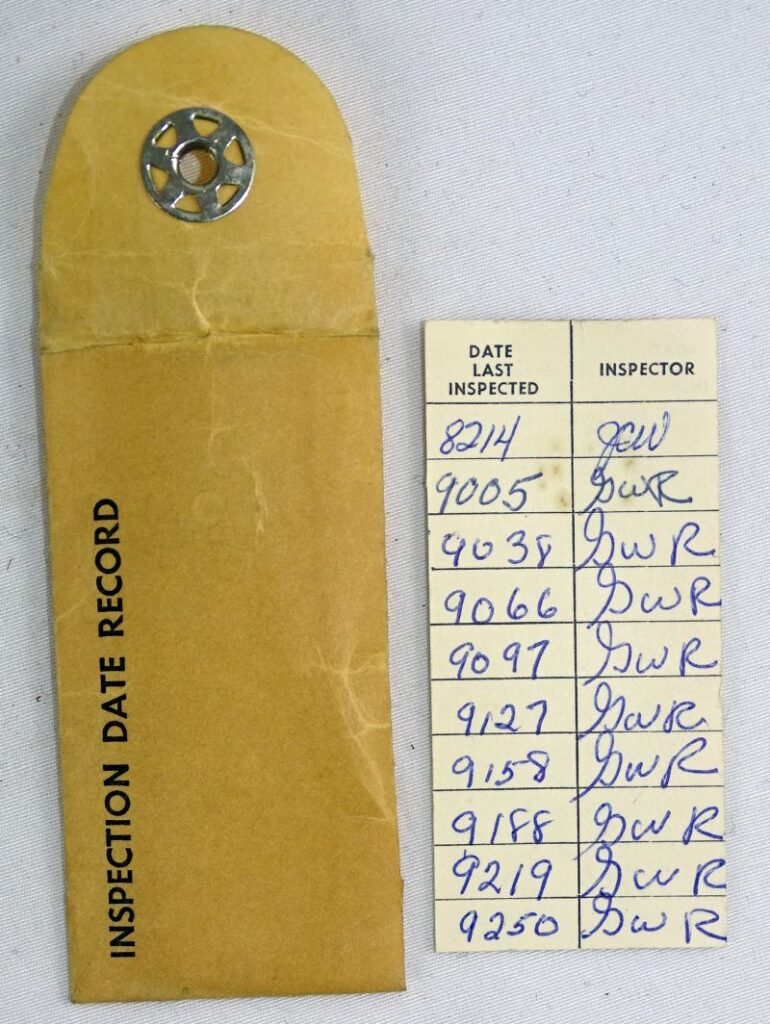 INSPECTION DATE RECORD
DATE LAST INSPECTED INSPECTOR
8214 JCW
9005 GWR
9038 GWR
9066 GWR
9097 GWR
9127 GWR
9158 GWR
9188 GWR
9219 GWR
9250 GWR